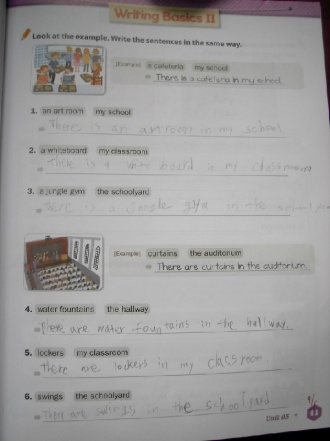 Writing Basics II
Look at the example. Write the sentences in the same way.
[Example] a cafeteria my school
There is a cafeteria in my school.
1. an art room my school
There is an art room in my school.
2. a whiteboard my classroom
There is a white board in my classroom
3. a jungle gym the schoolyard
There is a jungle in the
[Example] curtains the auditorium
There are curtains in the auditorium.
4. water fountains the hallway
There are water fountains in the hallway.
5. lockers my classroom
There are lockers in my classroom.
6. swings the schoolyard
There are swings in the school yard
Unit 03